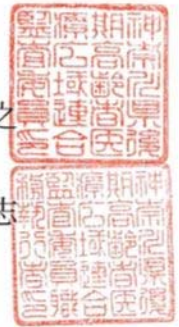 之
神奈川県後
期高齢者医
療広域連合
監査委員印
志
神奈川県後
期高齢者医
療広域連合
監査委員職
務執行者印